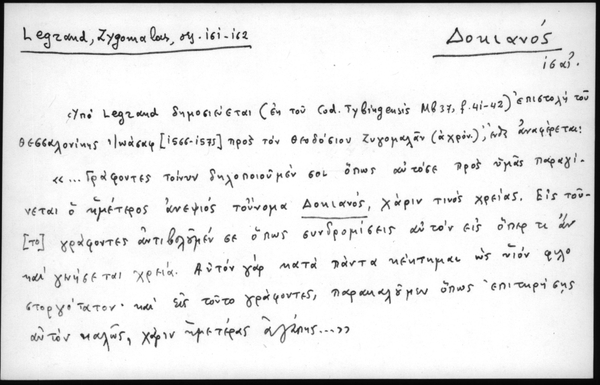 Legrand, Zygomalas, σσ. 161-162
Δοκιανός
ις α΄.
Ὑπό Legrand δημοσιεύεται (ἐκ τοῦ Cod. Tybingensis Mb 37, f. 41-42) ἐπιστολή τοῦ
Θεσσαλονίκης Ἰωάσαφ [1566-1575] πρός τόν Θεοδόσιον Ζυγομαλᾶν (ἄχρον.), ἔνθ' ἀναφέρεται:
«... Γράφοντες τοίνυν δηλοποιοῦμέν σοι ὅπως αὐτόσε πρός ὑμᾶς παραγί-
νεται ὁ ἡμέτερος ἀνεψιός τοὔνομα Δοκιανός, χάριν τινός χρείας. Εἰς τοῦ-
[το] γράφοντες ἀντιβολοῦμέν σε ὅπως συνδρομίσεις αὐτόν εἰς ὅπερ τι ἄν
καί γενήσεται χρεία. Αὐτόν γάρ κατά πάντα κέκτημαι ὡς υἱόν φιλο
στοργότατον· καί εἰς τοῦτο γράφοντες, παρακαλοῦμεν ὅπως ἐπιτηρήσῃς
αὐτόν καλῶς, χάριν ἡμετέρας ἀγάπης...»